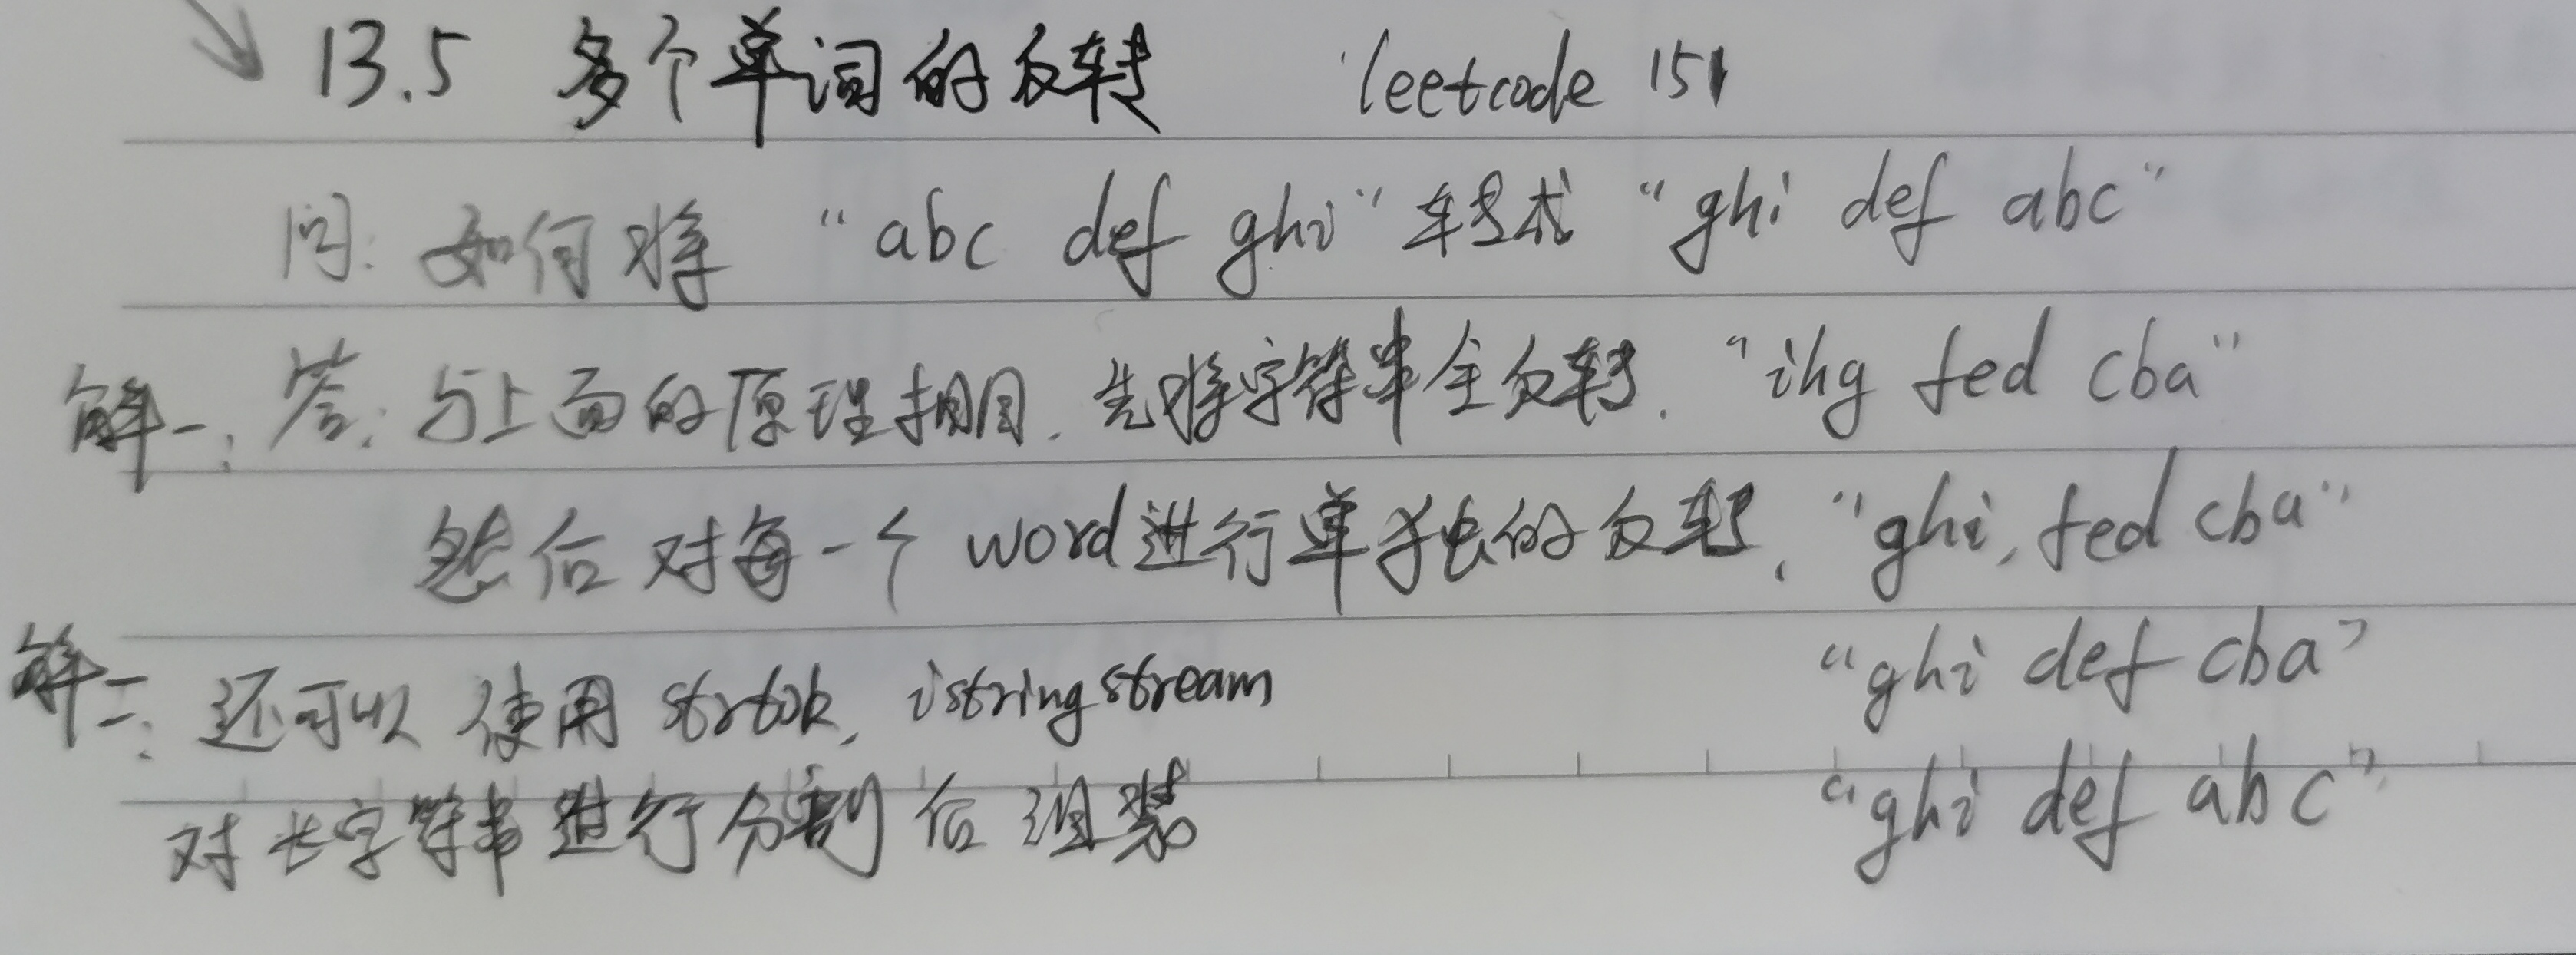 13.5 多个单词的反转 leetcode 151
问: 如何将 "abc def ghi" 转成 "ghi def abc"
解一: 答: 与上面的原理相同. 先将字符串全反转. "ihg fed cba"
然后对每一个 word 进行单独的反转, "ghi, fed cba"
"ghi def cba"
解二: 还可以使用 strtok, istringstream
对长字符串进行分割后组装 "ghi def abc"